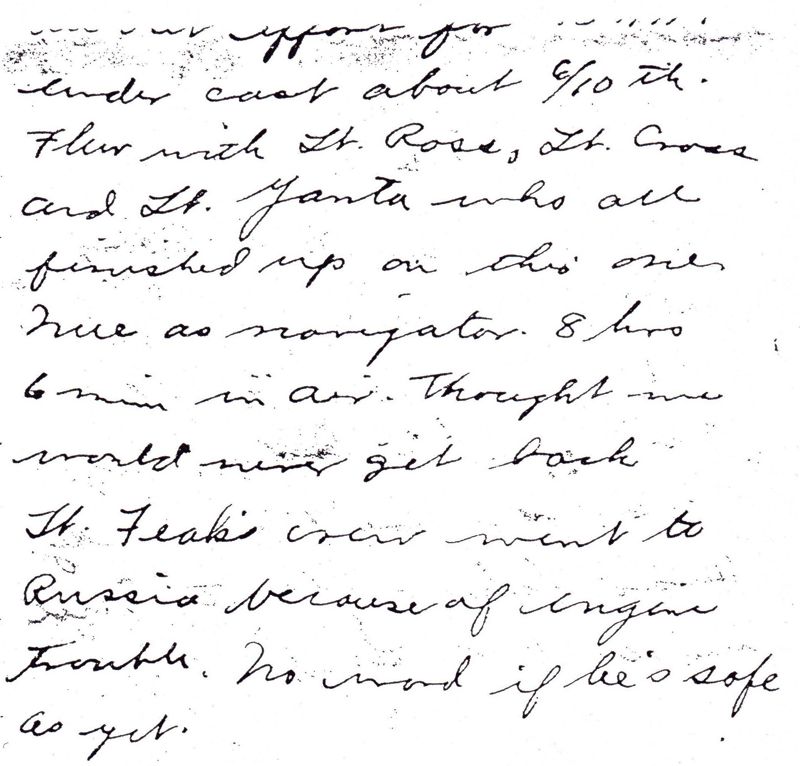 effort for
under cast about 6/10 th.
Flew with Lt. Ross, Lt. Cross
and Lt. Yanta who all
finished up on this one.
as navigator. 8 hrs
6 min in air. Thought we
would never get back
Lt. Feak's crew went to
Russia because of engine
trouble. No word if he's safe
as yet.